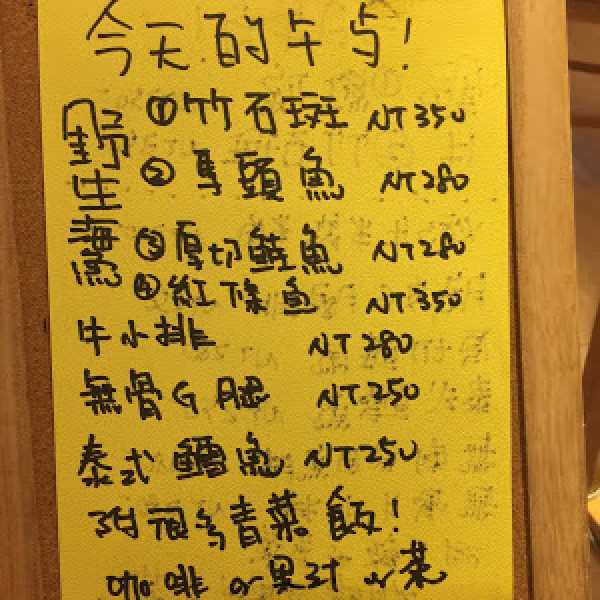 今天的午与!
野生海魚
①竹石斑 NT350
②馬頭魚 NT280
③厚切鮭魚 NT280
④紅條魚 NT350
牛小排 NT280
無骨G腿 NT.250
泰式鱈魚 NT250
青菜飯!
咖啡 or 果汁 or 茶